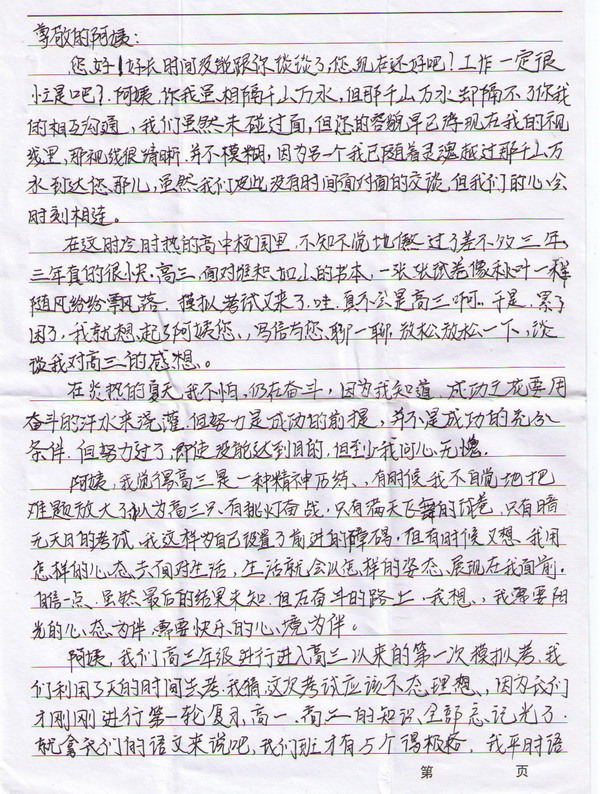 尊敬的阿姨：
您好！好长时间没能跟你谈谈了，您现在还好吧？工作一定很
忙是吧？阿姨，你我虽相隔千山万水，但那千山万水却隔不了你我
的相互沟通，我们虽然未碰过面，但你的容貌早已浮现在我的视
线里，那视线很清晰，并不模糊，因为另一个我已随着灵魂越过那千山万
水到达您那儿，虽然我们彼此没有时间面对面的交谈，但我们的心会
时刻相连。
在这时冷时热的高中校园里，不知不觉地熬过了差不多三年，
三年真的很快，高三，面对堆积如山的书本，一张张试卷像秋叶一样
随风纷纷飘落，模拟考试又来了，哇，真不会是高三啊。于是，累了
困了，我就想起了阿姨您，写信与您聊一聊，放松放松一下，谈
谈我对高三的感想。
在炎热的夏天，我不怕，仍在奋斗，因为我知道，成功之花要用
奋斗的汗水来浇灌，但努力是成功的前提，并不是成功的充分
条件，但努力过了，即使没能达到目的，但至少我问心无愧。
阿姨，我觉得高三是一种精神历练，有时候我不自觉地把
难题放大了，认为高三只有挑灯奋战，只有满天飞舞的试卷，只有暗
无天日的考试，我这样为自己设置了前进的障碍，但有时候又想，我用
怎样的心态去面对生活，生活就会以怎样的姿态展现在我面前，
自信一点，虽然最后的结果未知，但在奋斗的路上，我想，我需要阳
光的心态为伴，需要快乐的心境为伴。
阿姨，我们高三年级进行进入高三以来的第一次模拟考，我
们利用了5天的时间去考，我猜这次考试应该不太理想，因为我们
才刚刚进行第一轮复习，高一、高二的知识全部忘记光了，
就拿我们的语文来说吧，我们班才有5个得极格，我平时语
第 页